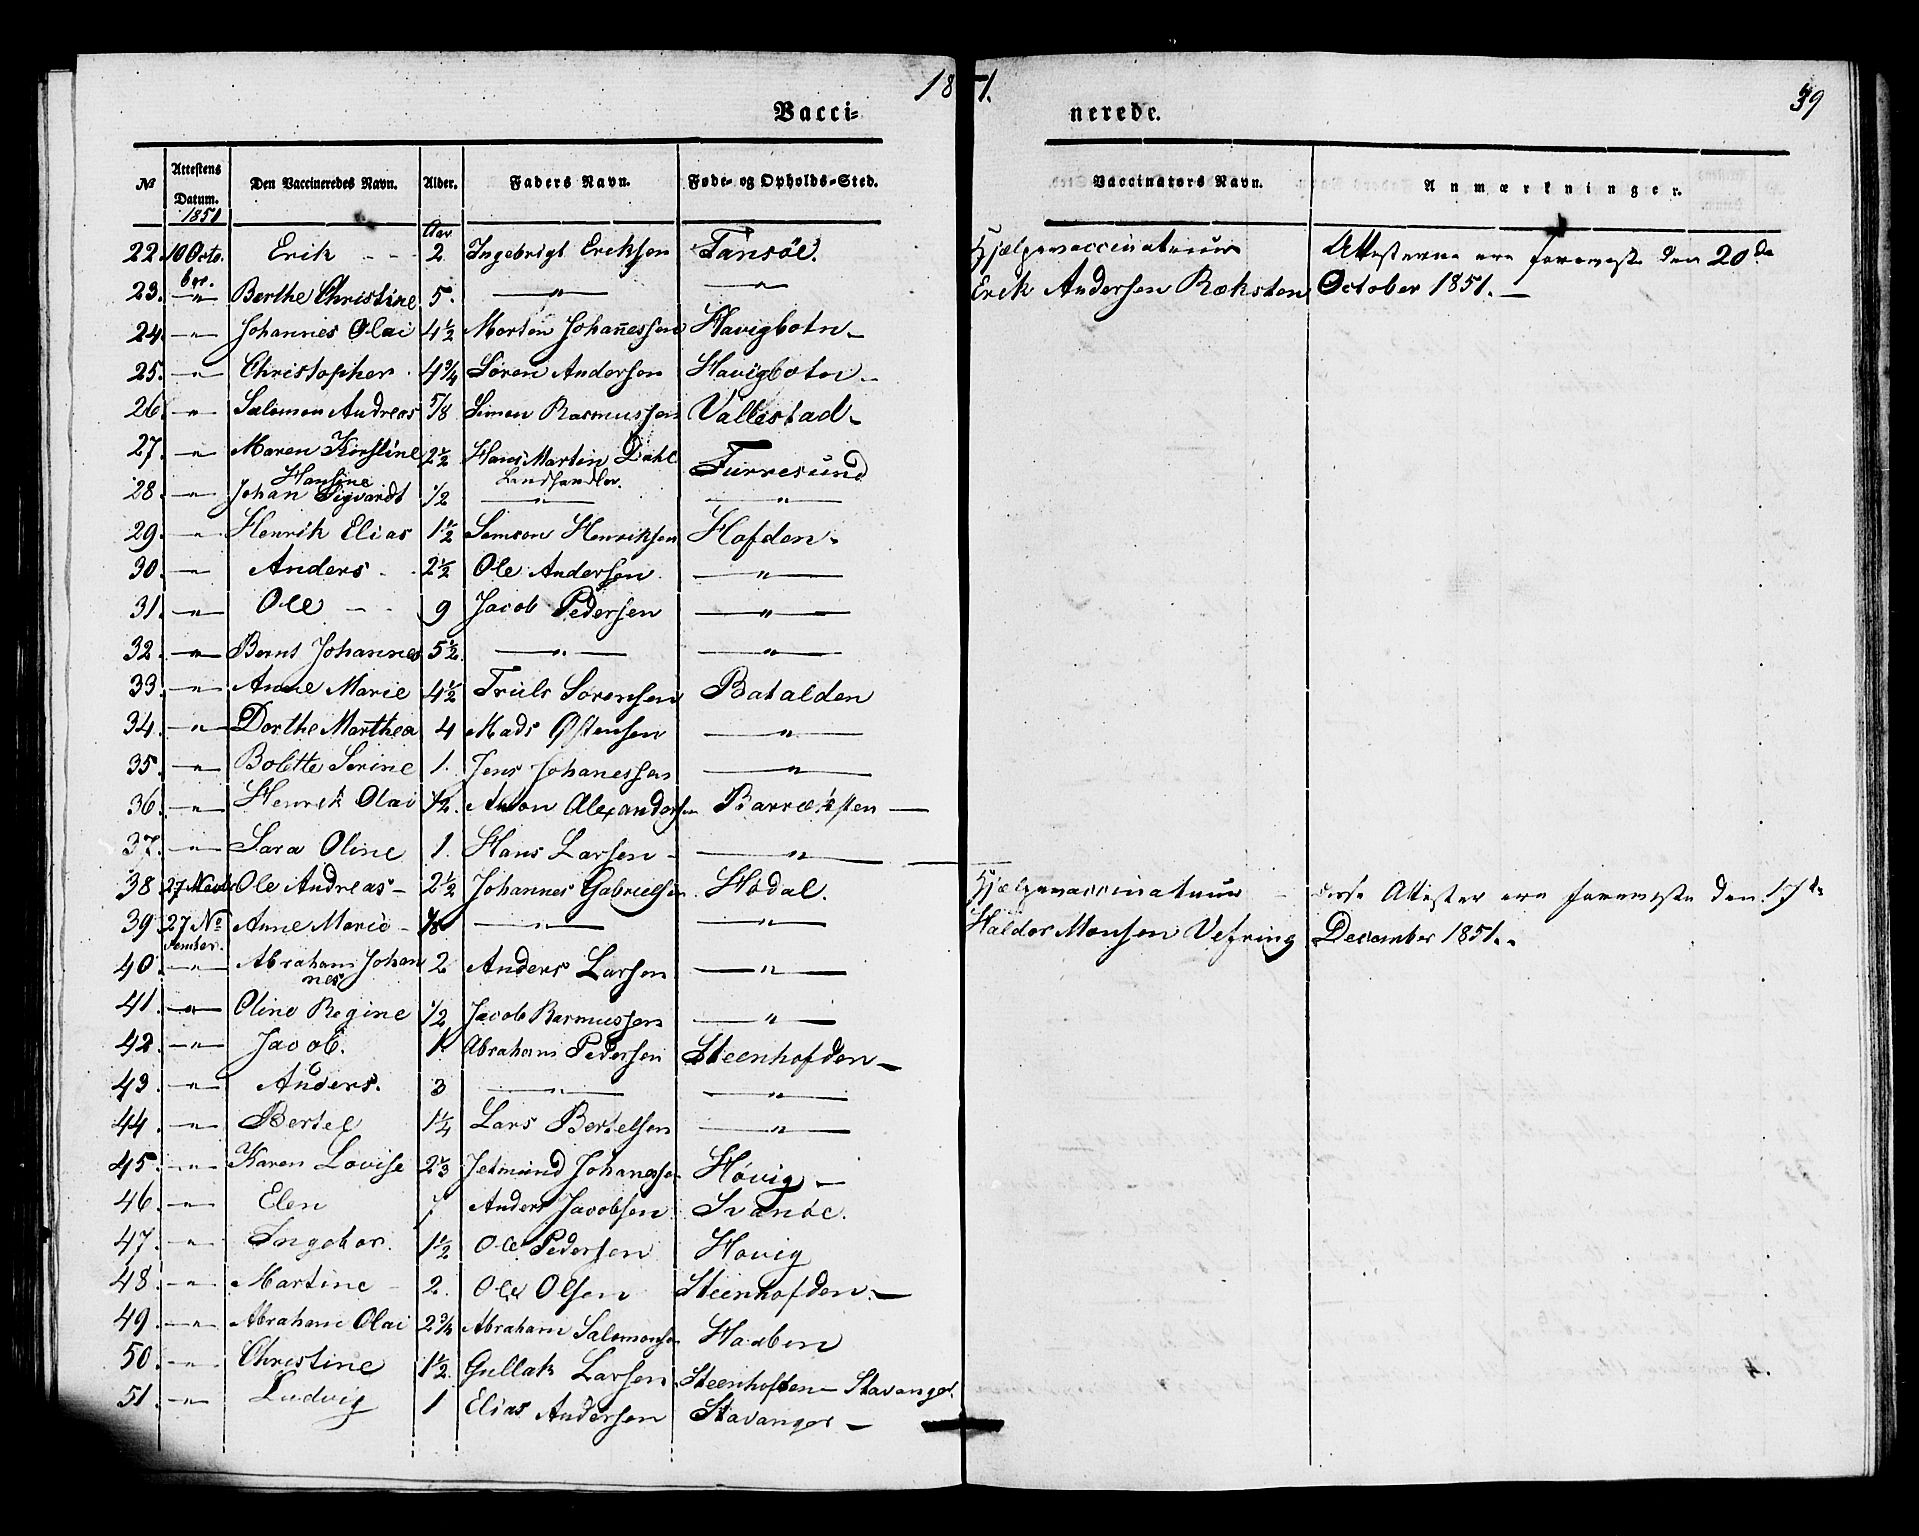 18 51.
39
Vacci- nerede.
№ Attestens Datum. Den Vaccineredes Navn. Alder. Faders Navn. Føde- og Opholds-Sted. Vaccinators Navn. Anmærkninger.
1851 Aar
22. 10 Octo- Erik - - 2 Ingebrigt Eriksen Tansöe. Hjælpevaccinateur Attesterne ere foreviste den 20de
ber.
23. — " — Berthe Christine 5. — " — — " — Erik Andersen Ræksten October 1851. —
24. — " — Johannes Olai 4½ Morten Johanessen Havigbotn —
25. — " — Christopher 4¾ Sören Andersen Havigbotn —
26. — " — Salomon Andreas 5/8 Simon Rasmussen Vallestad —
27. — " — Maren Kirstine 2½ Hans Martin Dahl Furresund
Hansine Landhandler.
28. — " — Johan Sigvardt ½ — " — — " —
29. — " — Henrik Elias 1½ Samson Henriksen Hofden —
30. — " — Anders - 2½ Ole Andersen — " —
31. — " — Ole - - 9 Jacob Pedersen — " —
32. — " — Bernt Johannes 5½ — " — — " —
33. — " — Anne Marie 4½ Truls Sörensen Batalden
34. — " — Dorthe Marthea 4 Mads Østensen — " —
35. — " — Bolette Serine 1. Jens Johanessen — " —
36. — " — Henrik Olai ½. Anton Alexandersen Barræksten —
37. — " — Sara Oline 1. Hans Larsen — — " —
38 27 Novb Ole Andreas — 2½ Johannes Gabrielsen Hodal. Hjælpevaccinateur disse Attester ere foreviste den 17de
39 27 No- Anne Marie - 1/8 — " — — " — Haldor Monsen Vefring December 1851. -
vember.
40. — " — Abraham Johan 2 Anders Larsen — " —
nes
41. — " — Oline Regine ½ Jacob Rasmussen — " —
42. — " — Jacob. 1. Abraham Pedersen Steenhofden —
43. — " — Anders. 3 — " — — " —
44. — " — Bertel 1¼ Lars Bertelsen — " —
45. — " — Karen Lovise 2⅓ Jetmund Johanessen Hövig —
46. — " — Elen Anders Jacobsen Svanöe.
47. — " — Ingebor. 1½ Ole Pedersen Hovig
48. — " — Martine - 2. Ole Olsen Steenhofden. —
49. — " — Abraham Olai 2¾ Abraham Salomonsen Haaben
50. — " — Christine 1½. Gullak Larsen Steenhoften — Stavanger.
51. — " — Ludvig 1 Elias Andersen Stavanger —